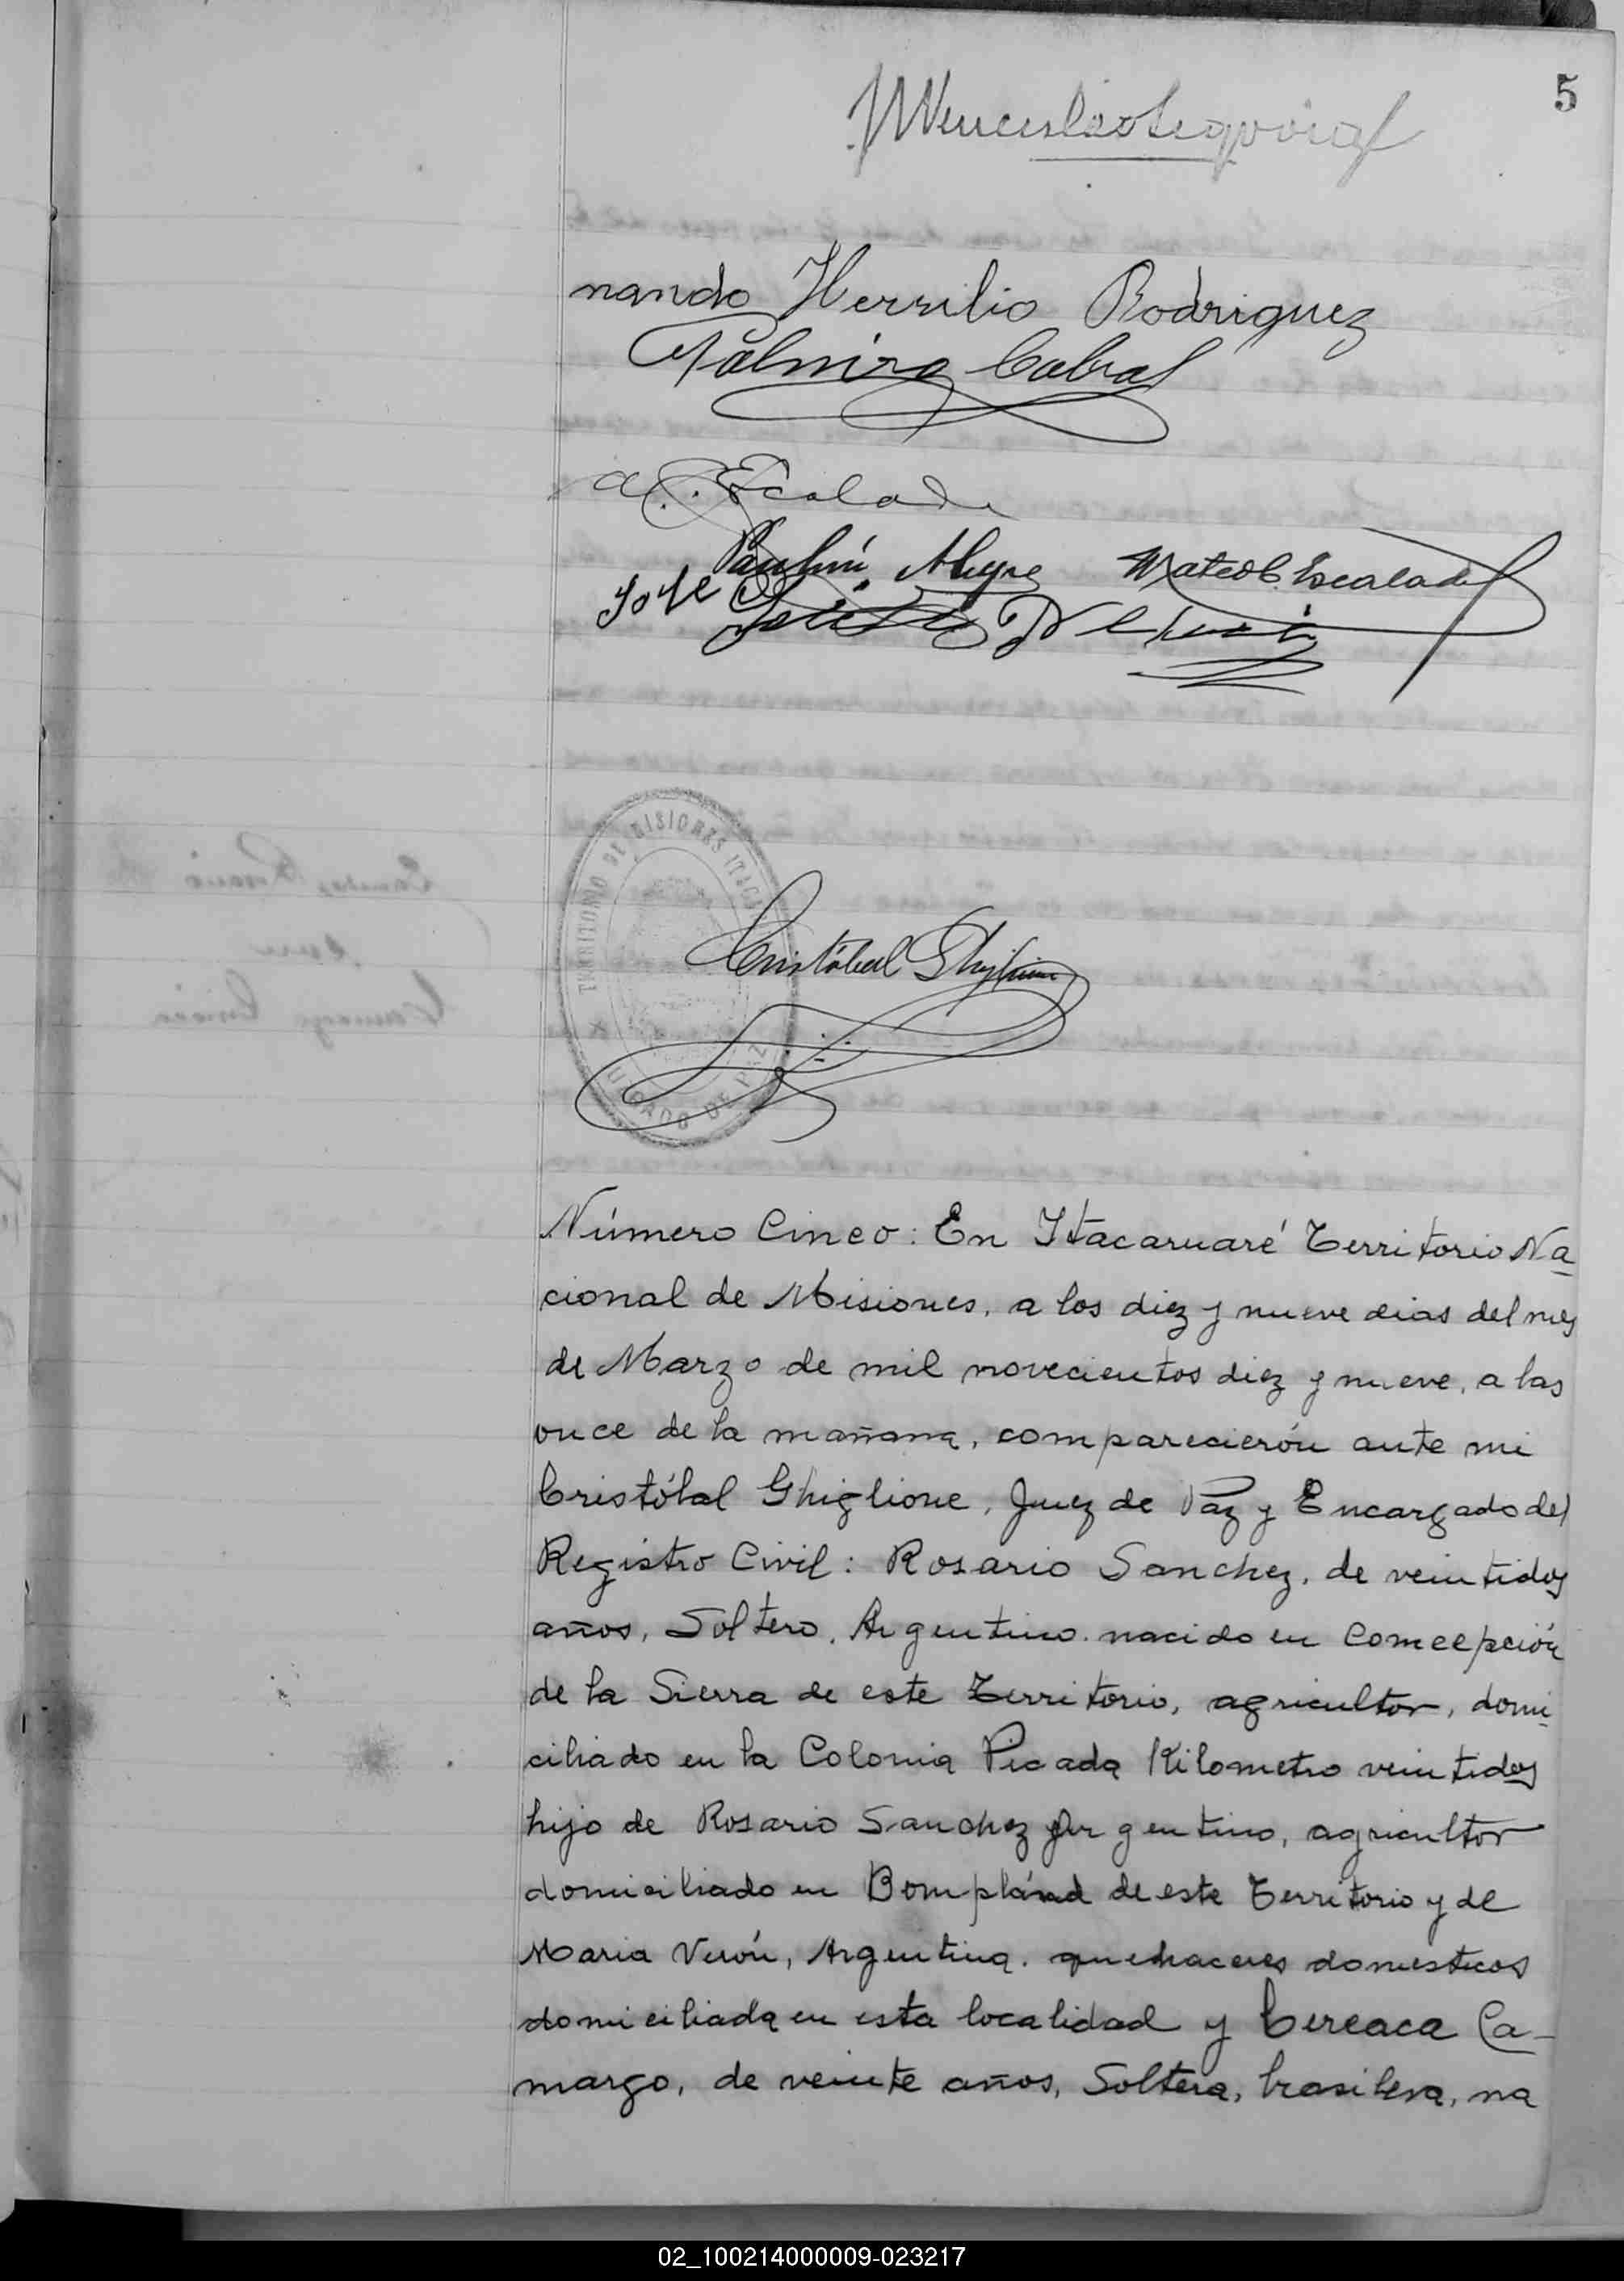 5
nando Hersilio Rodriguez
Palmira Cabral
Escalada
Paulino Alegre Mateo C. Escalada
Jose
TERRITORIO DE MISIONES
JUZGADO DE PAZ
Cristóbal Ghiglione
Número Cinco: En Itacaruaré Territorio Na
cional de Misiones, a los diez y nueve dias del mes
de Marzo de mil novecientos diez y nueve, a las
once de la mañana, comparecierón ante mi
Cristóbal Ghiglione, Juez de Paz y Encargado del
Registro Civil: Rosario Sanchez, de veintidos
años, Soltero, Argentino. nacido en Comcepción
de la Sierra de este Territorio, agricultor, domi
ciliado en la Colonia Picada Kilometro veintidos
hijo de Rosario Sanchez Argentino, agricultor
domiciliado en Bompland de este Territorio y de
Maria Verón, Argentina. quehaceres domesticos
domiciliada en esta localidad y Cereaca Ca-
margo, de veinte años, Soltera, brasilera, na
02_100214000009-023217